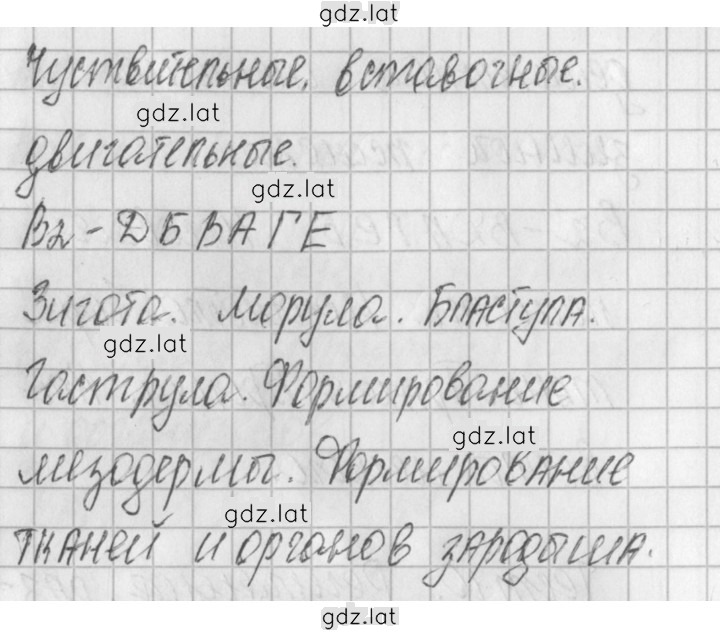 gdz.lat
Чуствительные. вставочные.
gdz.lat
двигательные.
gdz.lat
В2 - ДБВАГЕ
Зигота. Морула. Бластула.
gdz.lat
Гаструла. Формирование
gdz.lat
мезодермы. Формирование
gdz.lat
тканей и органов зародыша.
gdz.lat